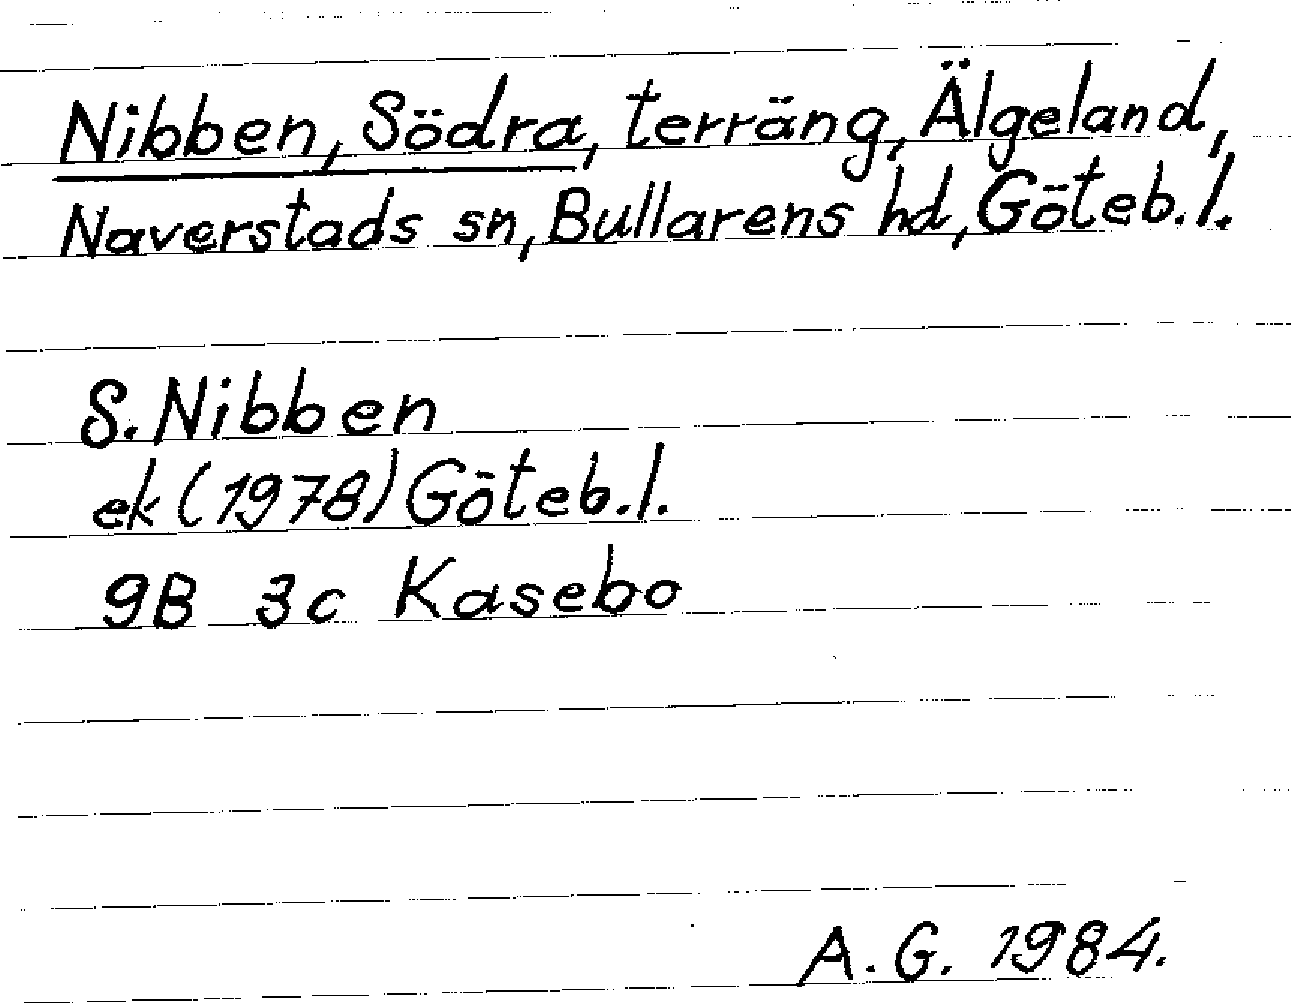 Nibben, Södra, terräng, Älgeland,
Naverstads sn, Bullarens hd, Göteb. l.
S. Nibben
ek (1978) Göteb. l.
9B 3c Kasebo
A. G. 1984.